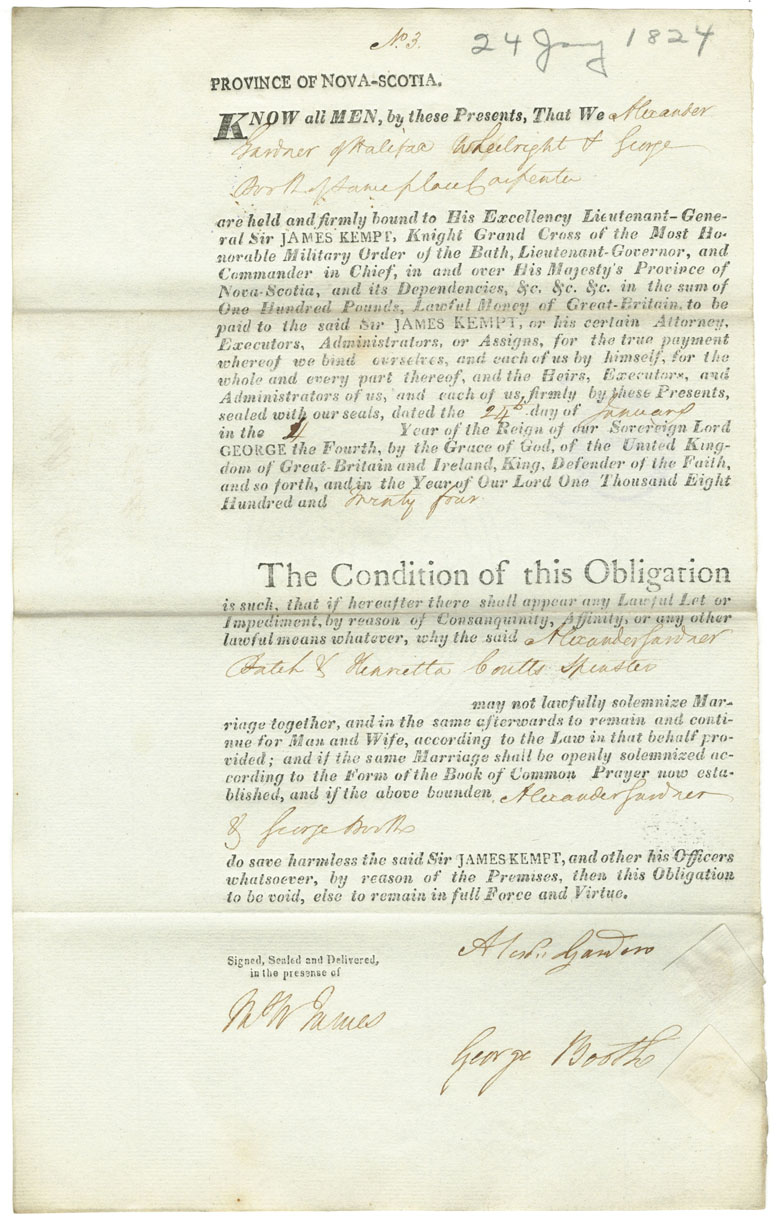 No. 3.
24 Jany 1824
PROVINCE OF NOVA-SCOTIA.
KNOW all MEN, by these Presents, That We Alexander
Gardner of Halifax Wheelright & George
Booth of same place Carpenter
are held and firmly bound to His Excellency Lieutenant-Gene-
ral Sir JAMES KEMPT, Knight Grand Cross of the Most Ho-
norable Military Order of the Bath, Lieutenant-Governor, and
Commander in Chief, in and over His Majesty's Province of
Nova-Scotia, and its Dependencies, &c. &c. &c. in the sum of
One Hundred Pounds, Lawful Money of Great-Britain, to be
paid to the said Sir JAMES KEMPT, or his certain Attorney,
Executors, Administrators, or Assigns, for the true payment
whereof we bind ourselves, and each of us by himself, for the
whole and every part thereof, and the Heirs, Executors, and
Administrators of us, and each of us, firmly by these Presents,
sealed with our seals, dated the 24th day of January
in the 4 Year of the Reign of our Sovereign Lord
GEORGE the Fourth, by the Grace of God, of the United King-
dom of Great-Britain and Ireland, King, Defender of the Faith,
and so forth, and in the Year of Our Lord One Thousand Eight
Hundred and Twenty four.
The Condition of this Obligation
is such, that if hereafter there shall appear any Lawful Let or
Impediment, by reason of Consanquinity, Affinity, or any other
lawful means whatever, why the said Alexander Gardner
Batch & Henrietta Coutts Spinster
may not lawfully solemnize Mar-
riage together, and in the same afterwards to remain and conti-
nue for Man and Wife, according to the Law in that behalf pro-
vided; and if the same Marriage shall be openly solemnized ac-
cording to the Form of the Book of Common Prayer now esta-
blished, and if the above bounden Alexander Gardner
& George Booth
do save harmless the said Sir JAMES KEMPT, and other his Officers
whatsoever, by reason of the Premises, then this Obligation
to be void, else to remain in full Force and Virtue.
Signed, Sealed and Delivered,
in the presence of
Alexr. Gardner
James
George Booth